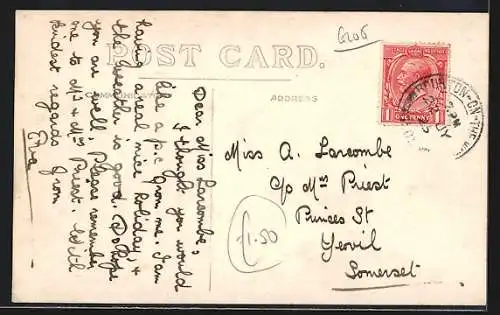 GLOS
POST CARD.
ADDRESS
Dear Miss Larcombe,
I thought you would
like a p.c from me. I am
having a real nice holiday, &
the weather is good. Do hope
you are well. Please remember
me to Mr & Mrs Priest. With
kindest regards from
Eva
POSTAGE REVENUE
1 ONE PENNY 1
-ON-THE-
PM
Miss A. Larcombe
c/o Mrs Priest
Princes St
Yeovil
Somerset
£1.50